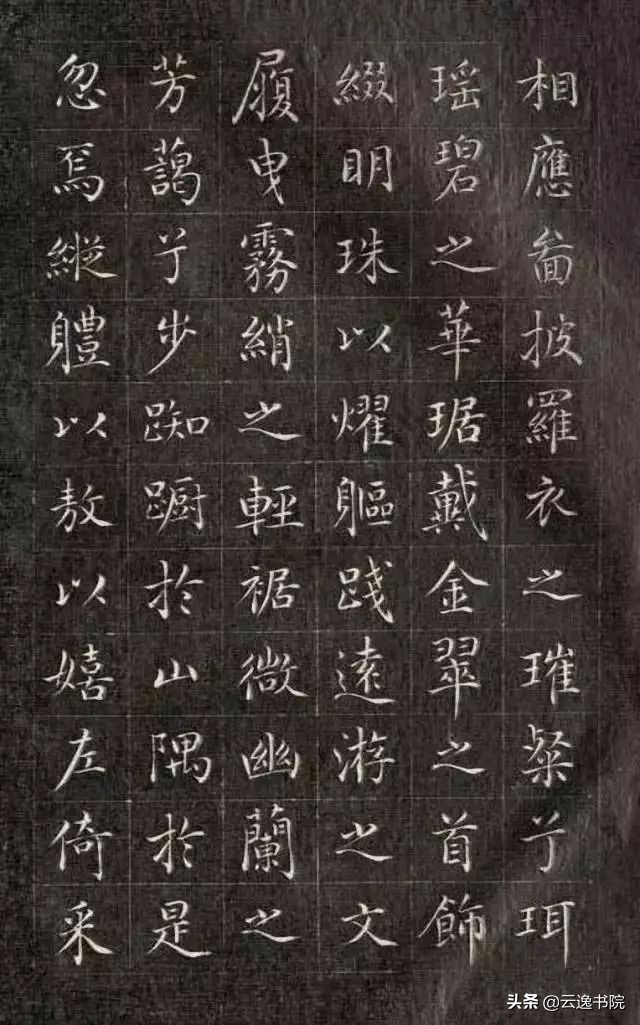 相應啚披羅衣之璀粲兮珥
瑶碧之華琚戴金翠之首飾
綴明珠以燿軀踐遠游之文
履曳霧綃之輕裾微幽蘭之
芳藹兮步踟蹰於山隅於是
忽焉縱體以敖以嬉左倚采
头条 @云逸书院